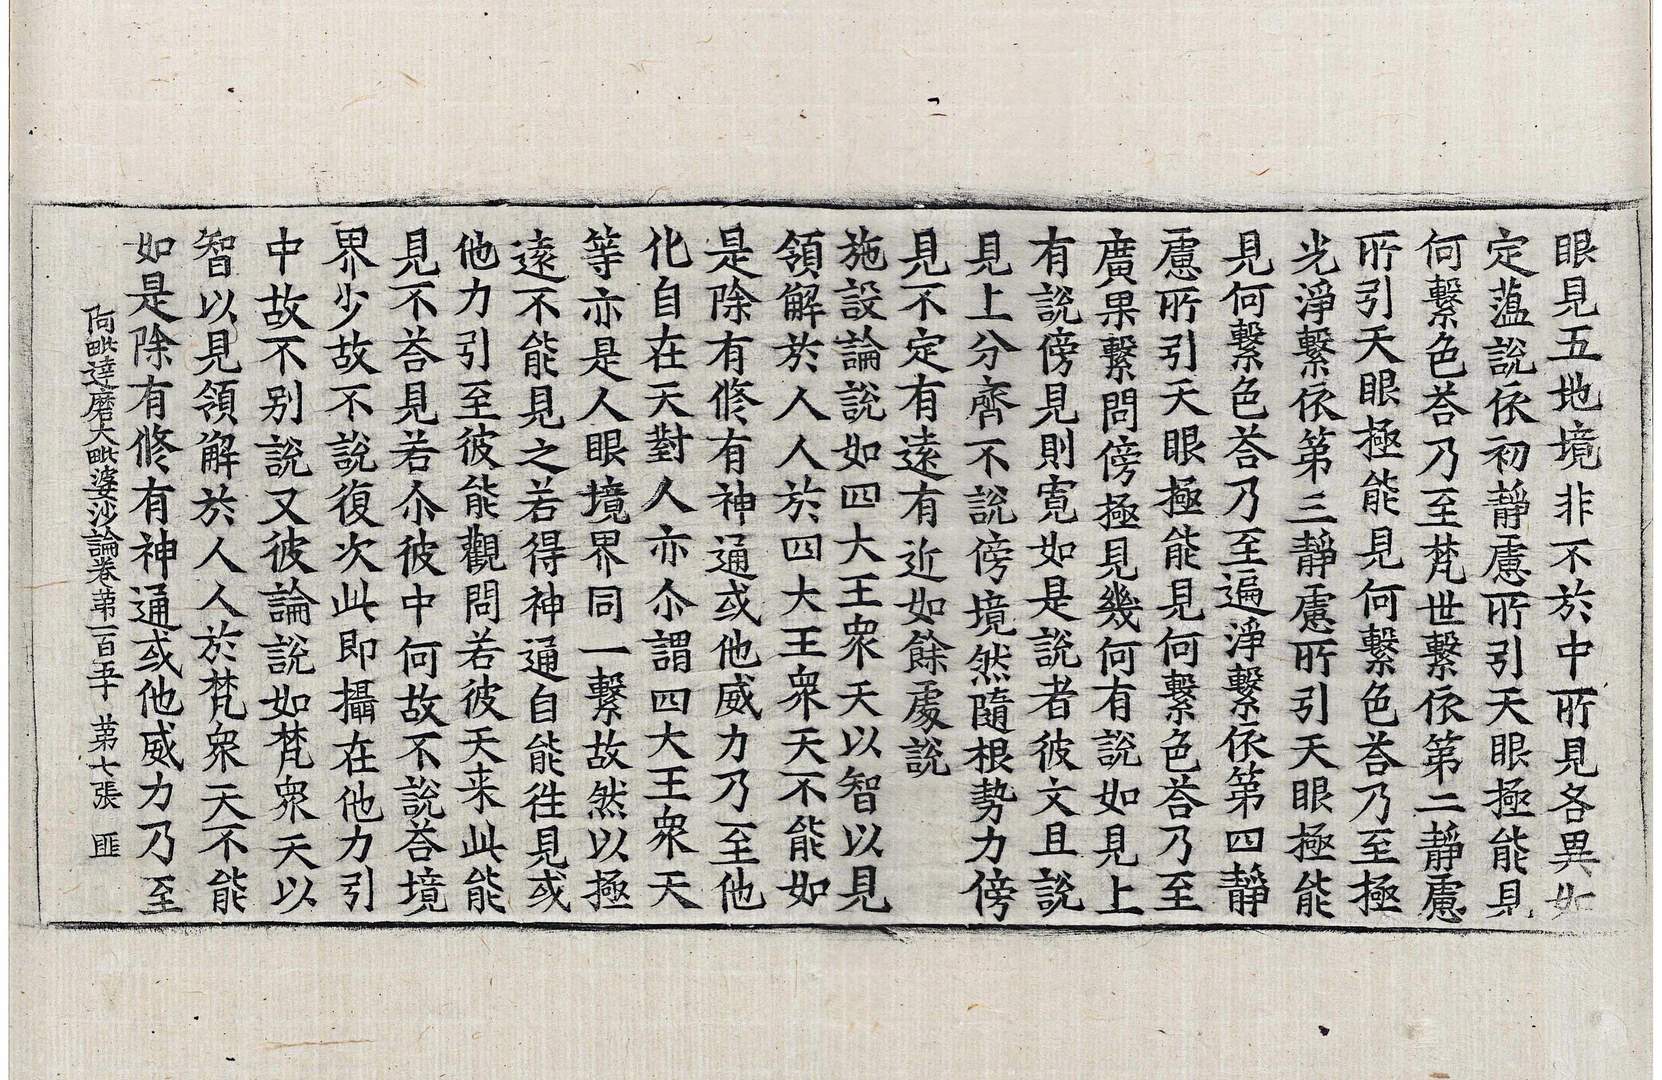 眼見五地境非不於中所見各異如
定蕰說依初靜慮所引天眼極能見
何繫色荅乃至梵世繫依第二靜慮
所引天眼極能見何繫色荅乃至極
光淨繫依第三靜慮所引天眼極能
見何繫色荅乃至遍淨繫依第四靜
慮所引天眼極能見何繫色荅乃至
廣果繫問傍極見幾何有說如見上
有說傍見則寬如是說者彼文且說
見上分齊不說傍境然隨根勢力傍
見不定有遠有近如餘處說
施設論說如四大王衆天以智以見
領解於人人於四大王衆天不能如
是除有修有神通或他威力乃至他
化自在天對人亦尒謂四大王衆天
等亦是人眼境界同一繫故然以極
遠不能見之若得神通自能徃見或
他力引至彼能觀問若彼天来此能
見不荅見若尒彼中何故不說荅境
界少故不說復次此即攝在他力引
中故不别說又彼論說如梵衆天以
智以見領解於人人於梵衆天不能
如是除有修有神通或他威力乃至
阿毗達磨大毗婆沙論卷第一百五十 第七張 匪